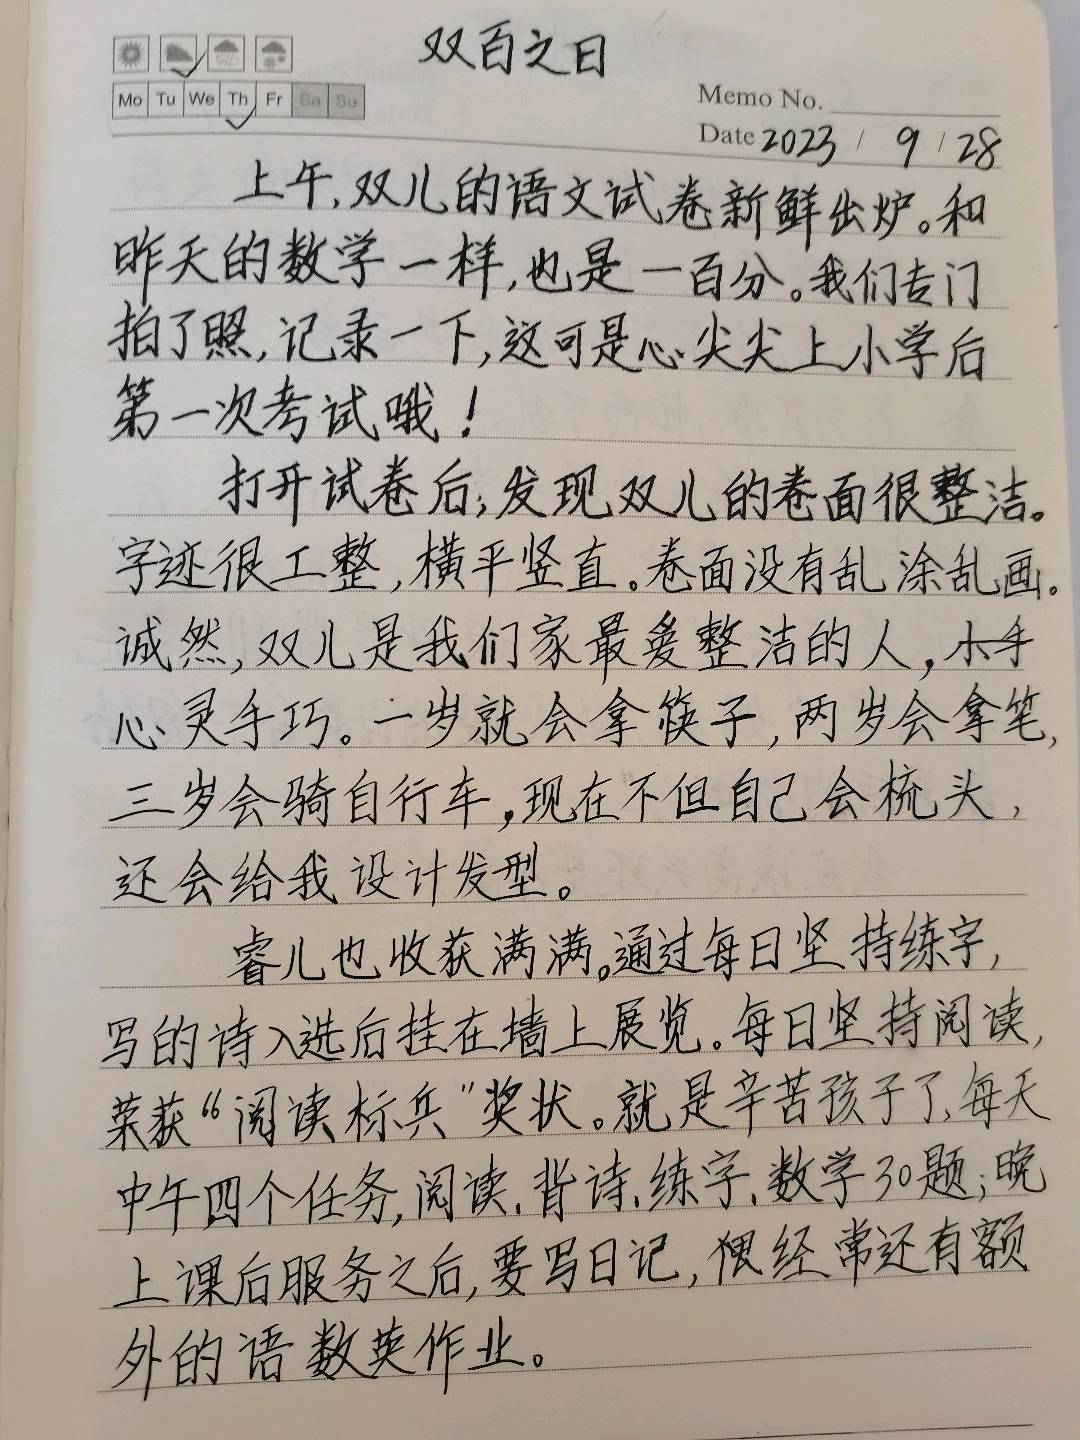 双百之日
Mo Tu We Th Fr Sa Su
Memo No.
Date 2023 / 9 / 28
上午,双儿的语文试卷新鲜出炉。和
昨天的数学一样,也是一百分。我们专门
拍了照,记录一下,这可是心尖尖上小学后
第一次考试哦!
打开试卷后;发现双儿的卷面很整洁。
字迹很工整,横平竖直。卷面没有乱涂乱画。
诚然,双儿是我们家最爱整洁的人,小手
心灵手巧。一岁就会拿筷子,两岁会拿笔,
三岁会骑自行车,现在不但自己会梳头,
还会给我设计发型。
睿儿也收获满满。通过每日坚持练字,
写的诗入选后挂在墙上展览。每日坚持阅读,
荣获“阅读标兵”奖状。就是辛苦孩子了,每天
中午四个任务,阅读、背诗、练字、数学30题;晚
上课后服务之后,要写日记,经常还有额
外的语数英作业。